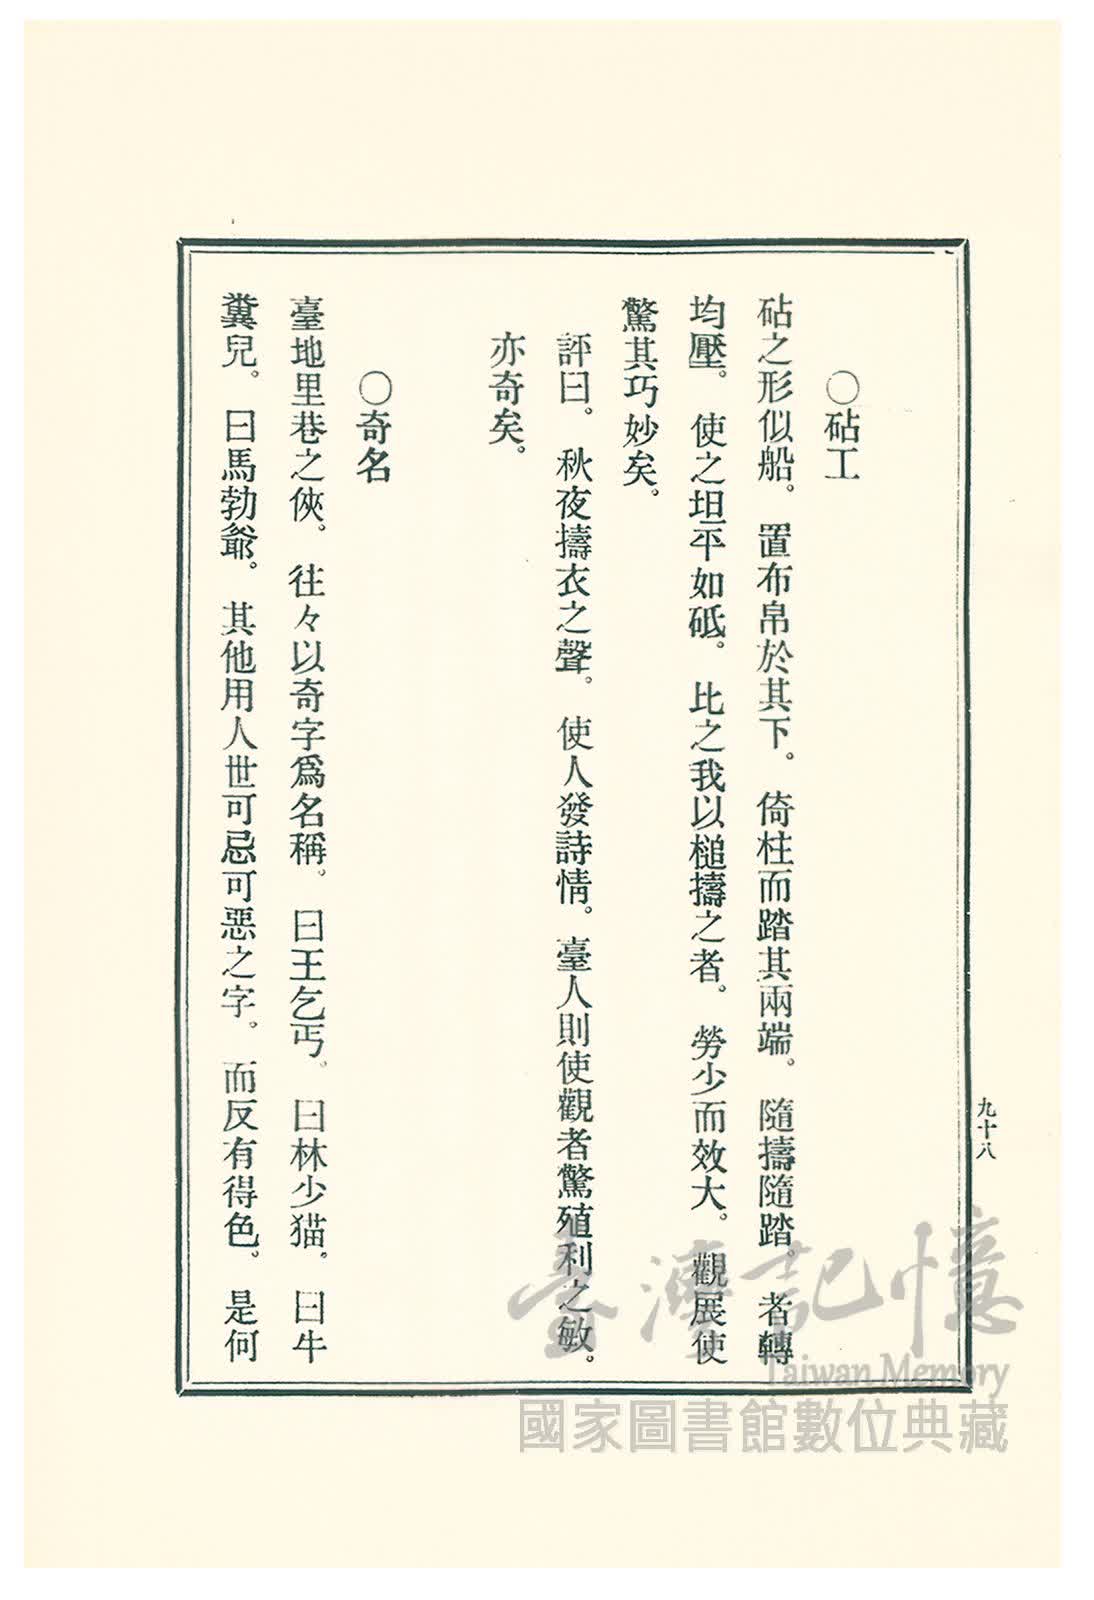 ○砧工
砧之形似船。置布帛於其下。倚柱而踏其兩端。隨擣隨踏。者轉
均壓。使之坦平如砥。比之我以槌擣之者。勞少而效大。觀展使
驚其巧妙矣。
評曰。秋夜擣衣之聲。使人發詩情。臺人則使觀者驚殖利之敏。
亦奇矣。
○奇名
臺地里巷之俠。往々以奇字爲名稱。曰王乞丐。曰林少猫。曰牛
糞兒。曰馬勃爺。其他用人世可忌可惡之字。而反有得色。是何
九十八
臺灣記憶
Taiwan Memory
國家圖書館數位典藏